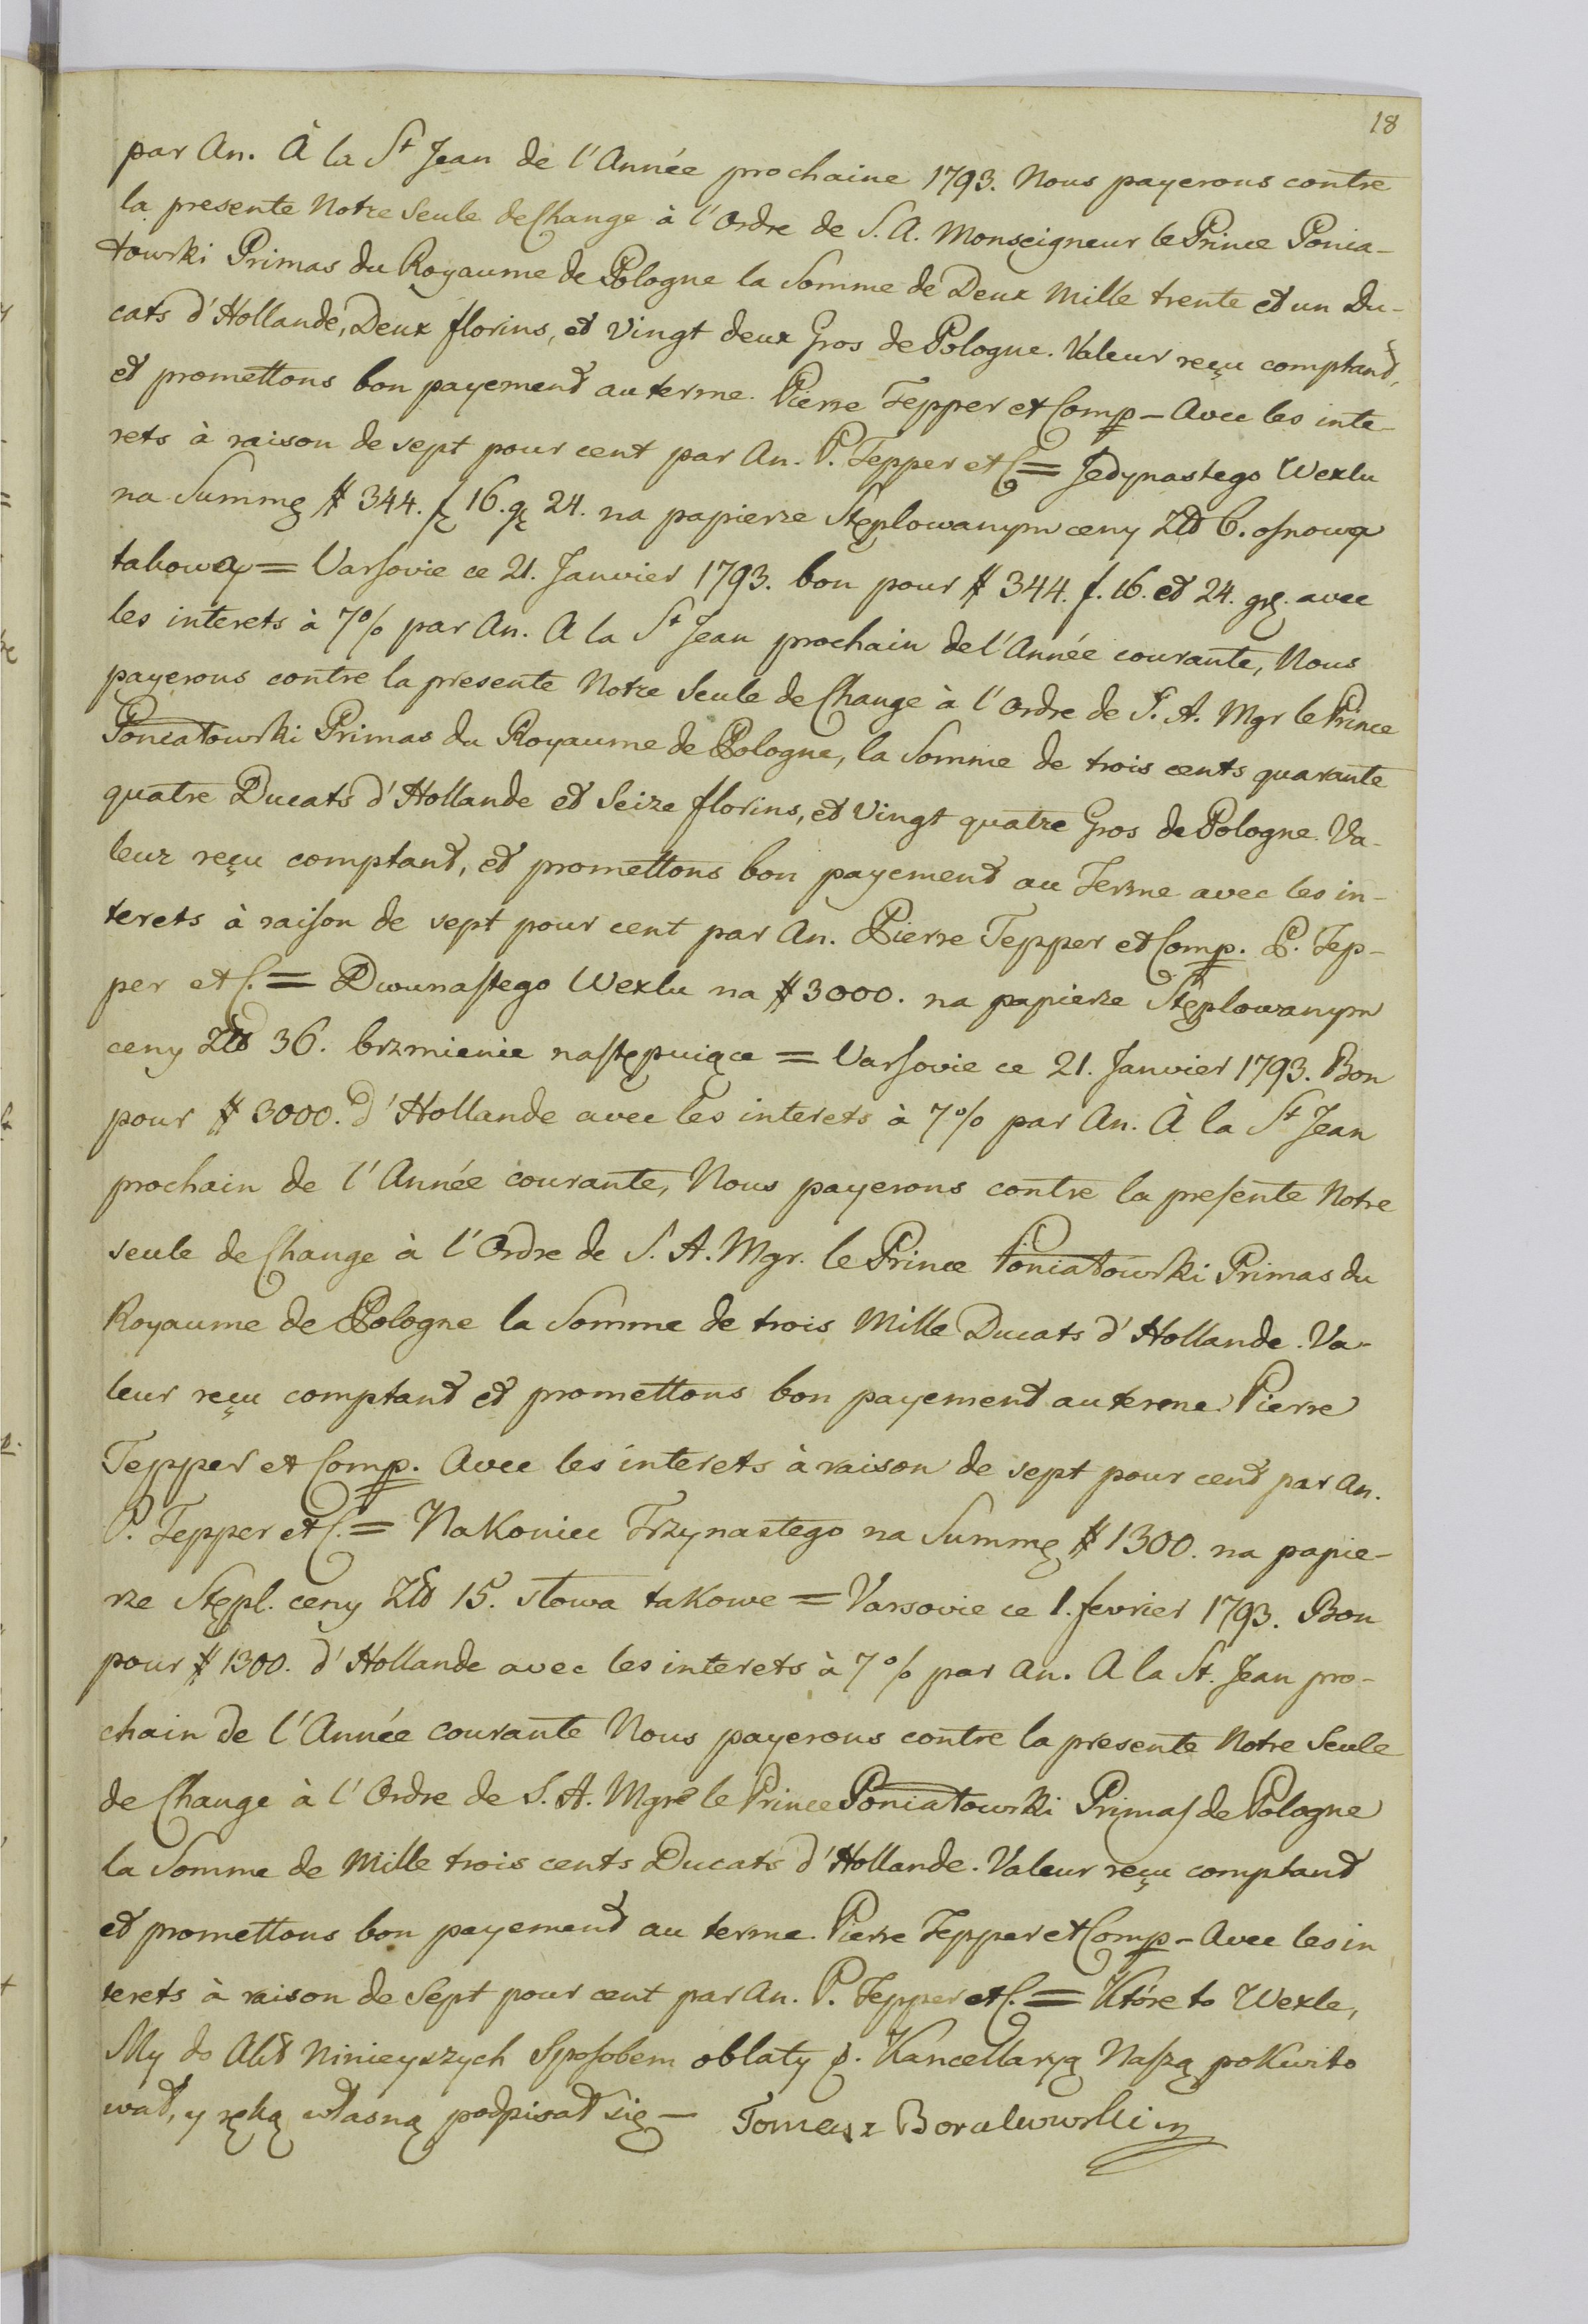 18
par An. À la St Jean de l'Année prochaine 1793. Nous payerons contre
la presente Notre Seule de Change à l'Ordre de S. A. Monseigneur le Prince Ponia-
towski Primas du Royaume de Pologne la Somme de Deux Mille trente et un Du-
cats d'Hollande, Deux florins, et Vingt deux Gros de Pologne. Valeur reçu comptant,
et promettons bon payement au terme. Pierre Tepper et Comp – Avec les inte-
rets à raison de sept pour cent par An. P. Tepper et C = Jedynastego Wexlu
na Summę # 344. f 16. g 24. na papierze Stęplowanym ceny Złł 6. osnową
takową = Varsovie ce 21. Janvier 1793. bon pour # 344. f. 16. et 24. grs. avec
les interets à 7% par An. A la St Jean prochain de l'Année courante, Nous
payerons contre la presente Notre Seule de Change à l'Ordre de S. A. Mgr le Prince
Poniatowski Primas du Royaume de Pologne, la Somme de trois cents quarante
quatre Ducats d'Hollande et Seize florins, et Vingt quatre Gros de Pologne. Va-
leur reçu comptant, et promettons bon payement au Terme avec les in-
terets à raison de sept pour cent par An. Pierre Tepper et Comp. P. Tep-
per et C. = Dwunastego Wexlu na # 3000. na papierze Stęplowanym
ceny Złł 36. brzmienie następuiące = Varsovie ce 21. Janvier 1793. Bon
pour # 3000. d'Hollande avec les interets à 7% par An. À la St Jean
prochain de l'Année courante, Nous payerons contre la presente Notre
seule de Change à l'Ordre de S. A. Mgr. le Prince Poniatowski Primas du
Royaume de Pologne la Somme de trois Mille Ducats d'Hollande. Va-
leur reçu comptant et promettons bon payement au terme. Pierre
Tepper et Comp. Avec les interets à raison de sept pour cent par An.
P. Tepper et C. = Nakoniec Trzynastego na Summę # 1300. na papie-
rze Stępl. ceny Złł 15. słowa takowe = Varsovie ce 1. fevrier 1793. Bon
pour # 1300. d'Hollande avec les interets à 7% par An. A la St. Jean pro-
chain de l'Année courante Nous payerons contre la presente Notre Seule
de Change à l'Ordre de S. A. Mgr le Prince Poniatowski Primas de Pologne
la Somme de Mille trois cents Ducats d'Hollande. Valeur reçu comptant
et promettons bon payement au terme. Pierre Tepper et Comp – Avec les in
terets à raison de Sept pour cent par An. P. Tepper et C. = Które to Wexle,
My do Akt Ninieyszych Sposobem oblaty p. Kancellaryą Naszą pokwito
wał, y ręką własną podpisał się –